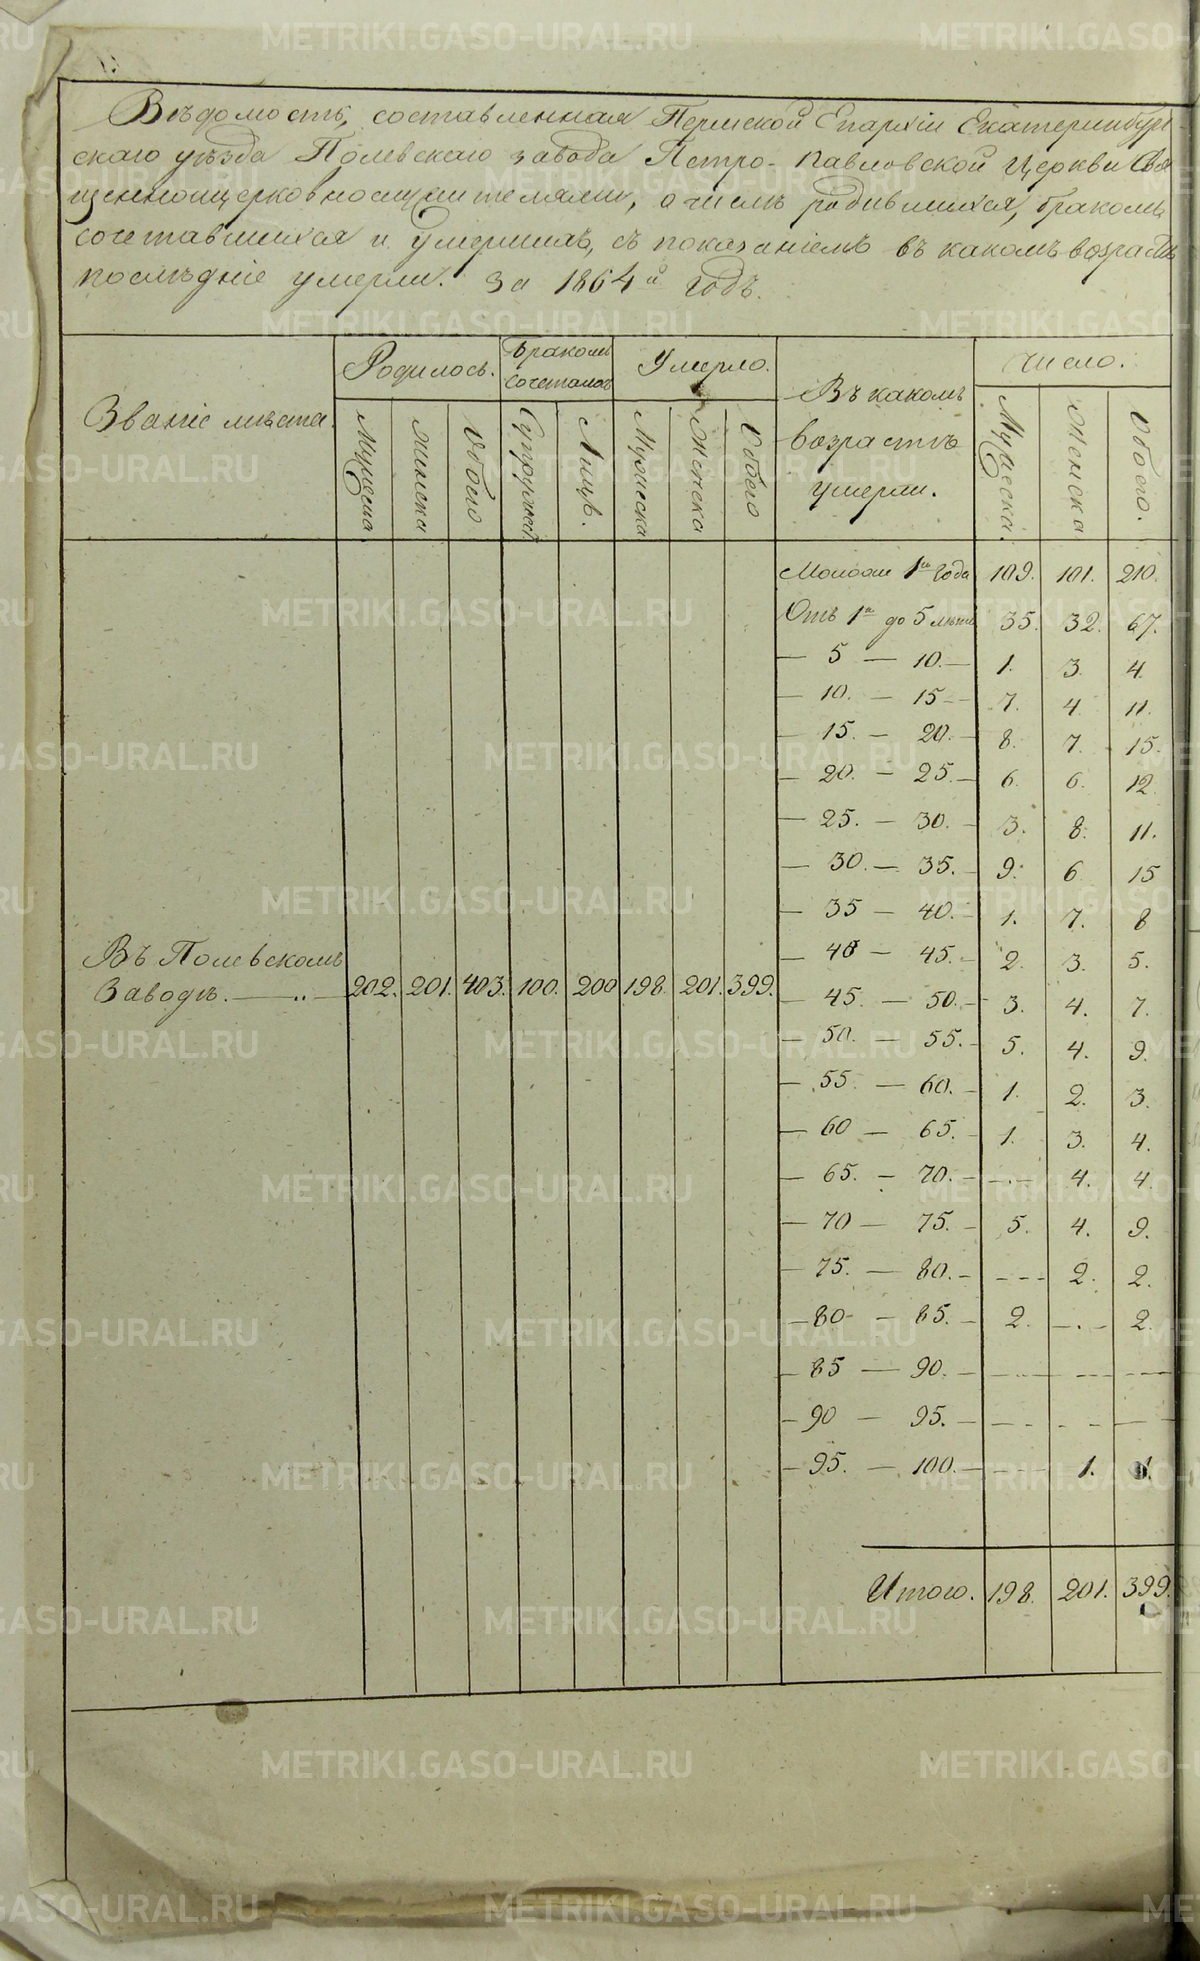 Вѣдомость, составленная Пермской Епархіи Екатеринбург-
скаго уѣзда Полевскаго завода Петро-Павловской Церкви Свя
щенноцерковнослужителями, о числѣ родившихся, бракомъ
сочетавшихся и умершихъ, съ показаніемъ въ какомъ возрастѣ
послѣдніе умерли. За 1864й годъ.
Званіе мѣста. Родилось. Бракомъ сочеталось Умерло. Въ какомъ возрастѣ умерли. Число.
Мужеска Женска Обоего Супружествъ Лицъ. Мужеска Женска Обоего Мужеска. Женска Обоего.
Моложе 1го года 109. 101. 210.
Отъ 1го до 5 лѣтъ 35. 32. 67.
— 5 — 10. — 1. 3. 4.
— 10. — 15 — 7. 4. 11.
— 15. — 20. — 8. 7. 15.
— 20. — 25. — 6. 6. 12.
— 25. — 30. — 3. 8. 11.
— 30. — 35. — 9. 6. 15
— 35 — 40. — 1. 7. 8
— 40 — 45. — 2. 3. 5.
Въ Полевскомъ
Заводѣ. — 202. 201. 403. 100. 200 198. 201. 399.
— 45. — 50. — 3. 4. 7.
— 50. — 55. — 5. 4. 9.
— 55. — 60. — 1. 2. 3.
— 60 — 65. — 1. 3. 4.
— 65. — 70. — - - - 4. 4.
— 70 — 75. — 5. 4. 9.
— 75. — 80. — - - - 2. 2.
— 80 — 85. — 2. - - - 2.
— 85 — 90. — - - - - - - - - -
— 90 — 95. — - - - - - - - - -
— 95. — 100. — - - - 1. 1.
Итого. 198. 201. 399.
METRIKI.GASO-URAL.RU